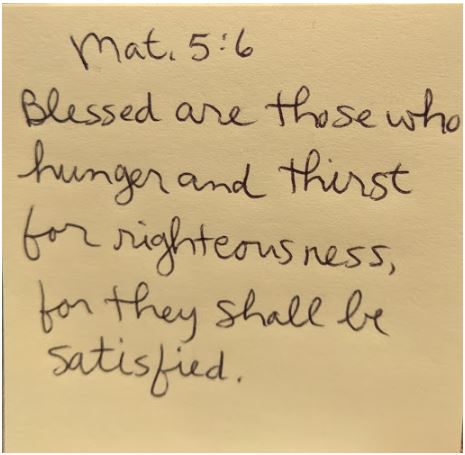 Mat. 5:6
Blessed are those who
hunger and thirst
for righteousness,
for they shall be
satisfied.